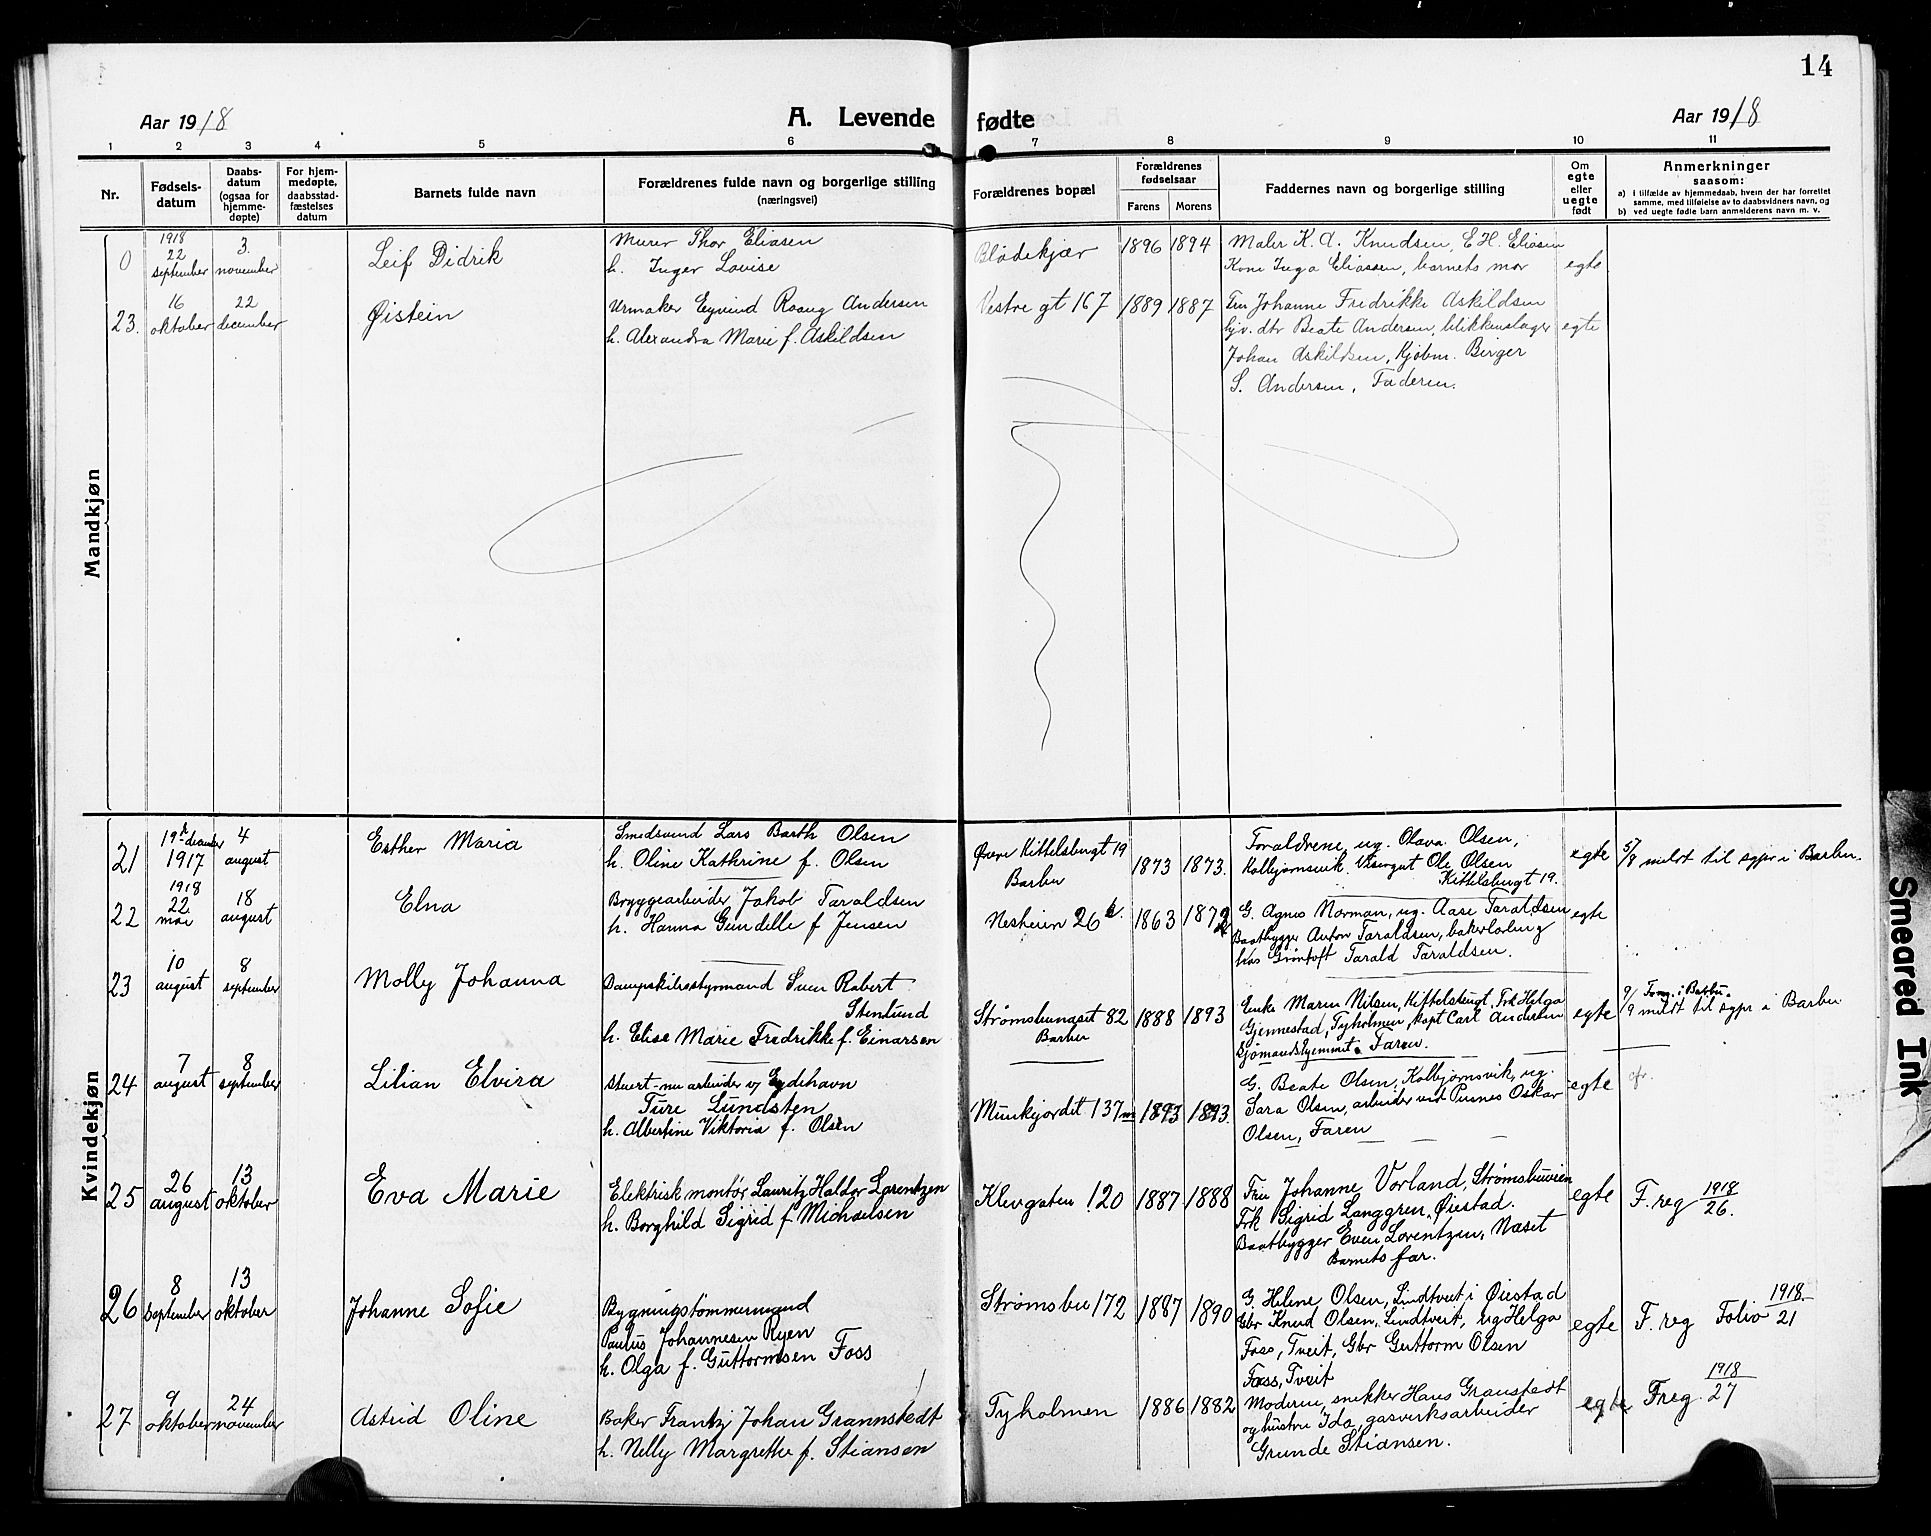 14
Aar 1918
A. Levende fødte
Aar 1918
1 2 3 4 5 6 7 8 9 10 11
Nr.
Fødsels-
datum
Daabs-
datum
(ogsaa for
hjemme-
døpte)
For hjem-
medøpte,
daabsstad-
fæstelses
datum
Barnets fulde navn
Forældrenes fulde navn og borgerlige stilling
(næringsvei)
Forældrenes bopæl
Forældrenes
fødselsaar
Farens Morens
Faddernes navn og borgerlige stilling
Om
egte
eller
uegte
født
Anmerkninger
saasom:
a) i tilfælde av hjemmedaab, hvem der har forrettet
samme, med tilføielse av to daabsvidners navn, og
b) ved uegte fødte barn anmelderens navn m. v.
Mandkjøn
0
1918
22
september
3.
november
Leif Didrik
Murer Thor Eliasen
h. Inger Lovise
Blødekjær
1896 1894
Maler K. A. Knudsen, E. H. Eliasen
Kone Inga Eliassen, barnets mor
egte
23.
16
oktober
22
december
Øistein
Urmaker Eyvind Roang Andersen
h. Alexandra Marie f. Askildsen
Vestre gt 167
1889 1887
Fru Johanne Fredrikke Askildsen
hjv. dtr Beate Andersen, blikkenslager
Johan Askildsen, Kjøbm. Birger
S. Andersen, Faderen.
egte
Kvindekjøn
21
19de december
1917
4
august
Esther Maria
Smedsvend Lars Barth Olsen
h. Oline Kathrine f. Olsen
Øvre Kittelsbugt 19
Barbu
1873 1873.
Foraldrene, ug. Olava Olsen,
Kolbjørnsvik. Visergut Ole Olsen
Kittelsbugt 19.
egte
5/8 meldt til sgpr i Barbu.
22
1918
22
mai
18
august
Elna
Bryggearbeider Jakob Taraldsen
h. Hanna Gundelle f Jensen
Nesheim 26 b.
1863 1872
G. Agnes Norman, ug. Aase Taraldsen
Baatbygger Anton Taraldsen, bakerlærling
hos Grøntoft Tarald Taraldsen.
egte
23
10
august
8
september
Molly Johanna
Dampskibsstyrmand Sven Robert
Stenlund
h. Elise Marie Fredrikke f. Einarsen
Strømsbunæset 82
Barbu
1888 1893
Enke Maren Nilsen, Kittelsbugt, Frk Helga
Gjennestad, Tyholmen, kapt Carl Andersen
Sjømandshjemmet. Faren.
egte
Fam. i Barbu.
9/9 meldt til sgpr i Barbu
24
7
august
8
september
Lilian Elvira
Stuert - nu arbeider v/ Eydehavn
Ture Lundsten
h. Albertine Viktoria f. Olsen
Munkjordet 137 m
1893 1893.
G. Beate Olsen, Kolbjørnsvik, ug.
Sara Olsen, arbeider ved Pusnes Oskar
Olsen, Faren
egte
25
26
august
13
oktober
Eva Marie
Elektrisk montør Lauritz Haldor Lorentzen
h. Borghild Sigrid f Michaelsen
Klevgaten 120
1887 1888
Fru Johanne Vorland, Strømsbuveien
Frk Sigrid Langgren, Øiestad.
Baatbygger Even Lorentzen, Næset
Barnets far.
egte
F. reg 1918/26.
26
8
september
13
oktober
Johanne Sofie
Bygningstømmermand
Paulus Johannesen Ryen
h. Olga f. Guttormsen Foss
Strømsbu 172
1887 1890
G. Helene Olsen, Lindtveit i Øiestad
Gbr Knud Olsen, Lindtveit, ug Helga
Foss, Tveit, Gbr Guttorm Olsen
Foss, Tveit
egte
F. reg Folio 1918/21
27
9
oktober
24
november
Astrid Oline
Baker Frantz Johan Grannstedt
h. Nelly Margrethe f. Stiansen
Tyholmen
1886 1882
Moderen, snekker Hans Granstedt
og hustru Ida, gasverksarbeider
Grunde Stiansen.
egte
F reg 1918/27
Smeared Ink